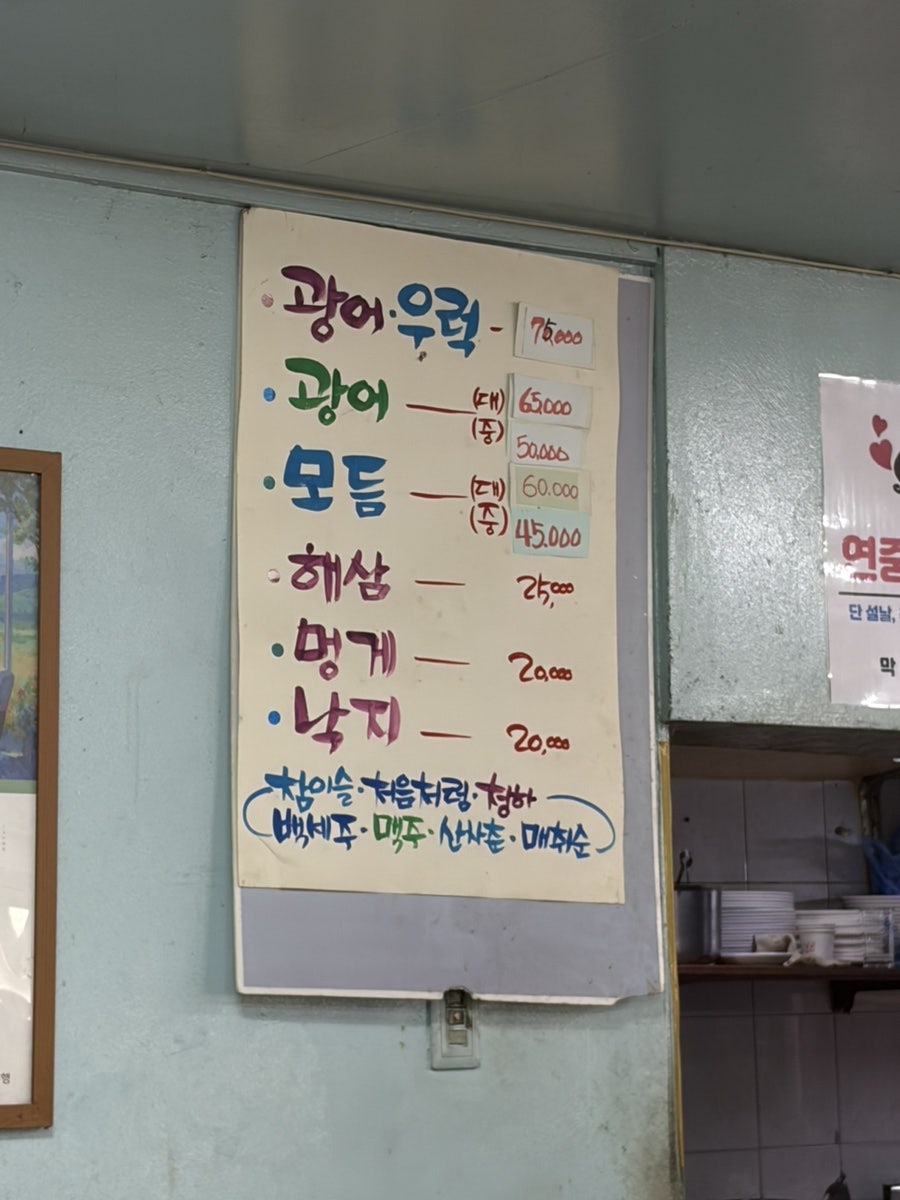 광어·우럭 - 75,000
광어 — (대) 65,000
(중) 50,000
모듬 — (대) 60.000
(중) 45.000
해삼 — 25,000
멍게 — 20,000
낙지 — 20,000
참이슬·처음처럼·청하
백세주·맥주·산사춘·매취순
연중
단 설날,
막
행